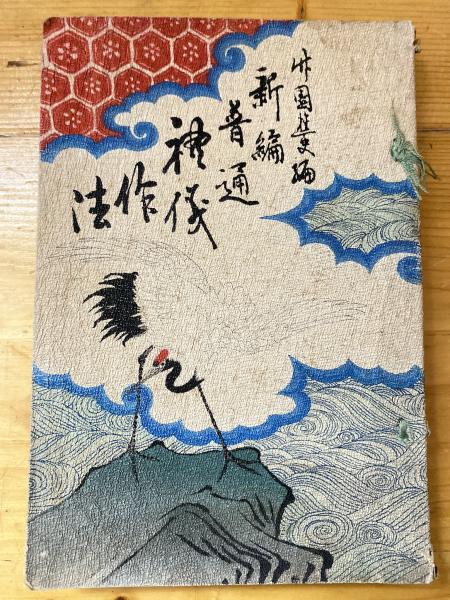 竹園 史編
新編
普通
禮儀
作法